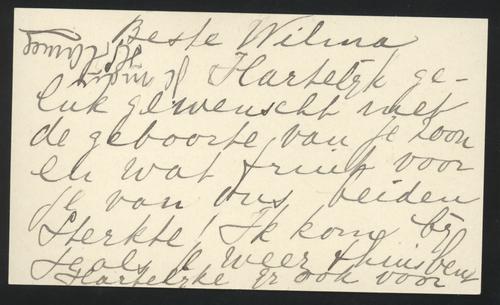 Beste Wilma
Hartelijk ge-
luk gewenscht met
de geboorte van je zoon
en wat fruit voor
je van ons beiden
Sterkte! Ik kom bij
je als je weer thuis bent
Hartelijke gr ook voor